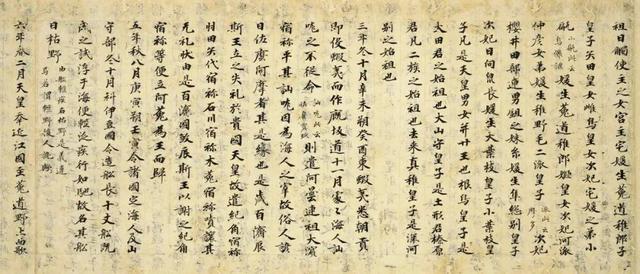 祖日觸使主之女宮主宅媛生菟道稚郎子
皇子矢田皇女雌鳥皇女次妃宅媛之弟小
甂媛生菟道稚郎姬皇女次妃河派
仲彥女弟媛生稚野毛二派皇子 次妃
櫻井田部連男鉏之妹糸媛生隼總別皇子
次妃日向泉長媛生大葉枝皇子小葉枝皇
子凡是天皇男女并廿王也根鳥皇子是
大田君之始祖也大山守皇子是土形君榛原
君凡二族之始祖也去來真稚皇子是深河
別之始祖也
三年冬十月辛未朔癸酉東蝦夷悉朝貢
即役蝦夷而作厩坂道十一月處々海人訕
哤之不從命 則遣阿曇連祖大濱
宿祢平其訕哤因為海人之宰故俗人諺
曰佐麼阿摩者其是緣也是歲百濟辰
斯王立之失礼於貴國天皇故遣紀角宿祢
羽田矢代宿祢石川宿祢木菟宿祢嘖讓其
无礼狀由是百濟國殺辰斯王以謝之紀角
宿祢等便立阿花為王而歸
五年秋八月庚寅朔壬寅令諸國定海人及山
守部冬十月科伊豆國令造船長十丈船既
成之試浮于海便輕泛疾行如馳故名其船
曰枯野 由船輕疾名枯野是義違
焉若謂輕野後人訛歟
六年春二月天皇幸近江國至菟道野上而歌